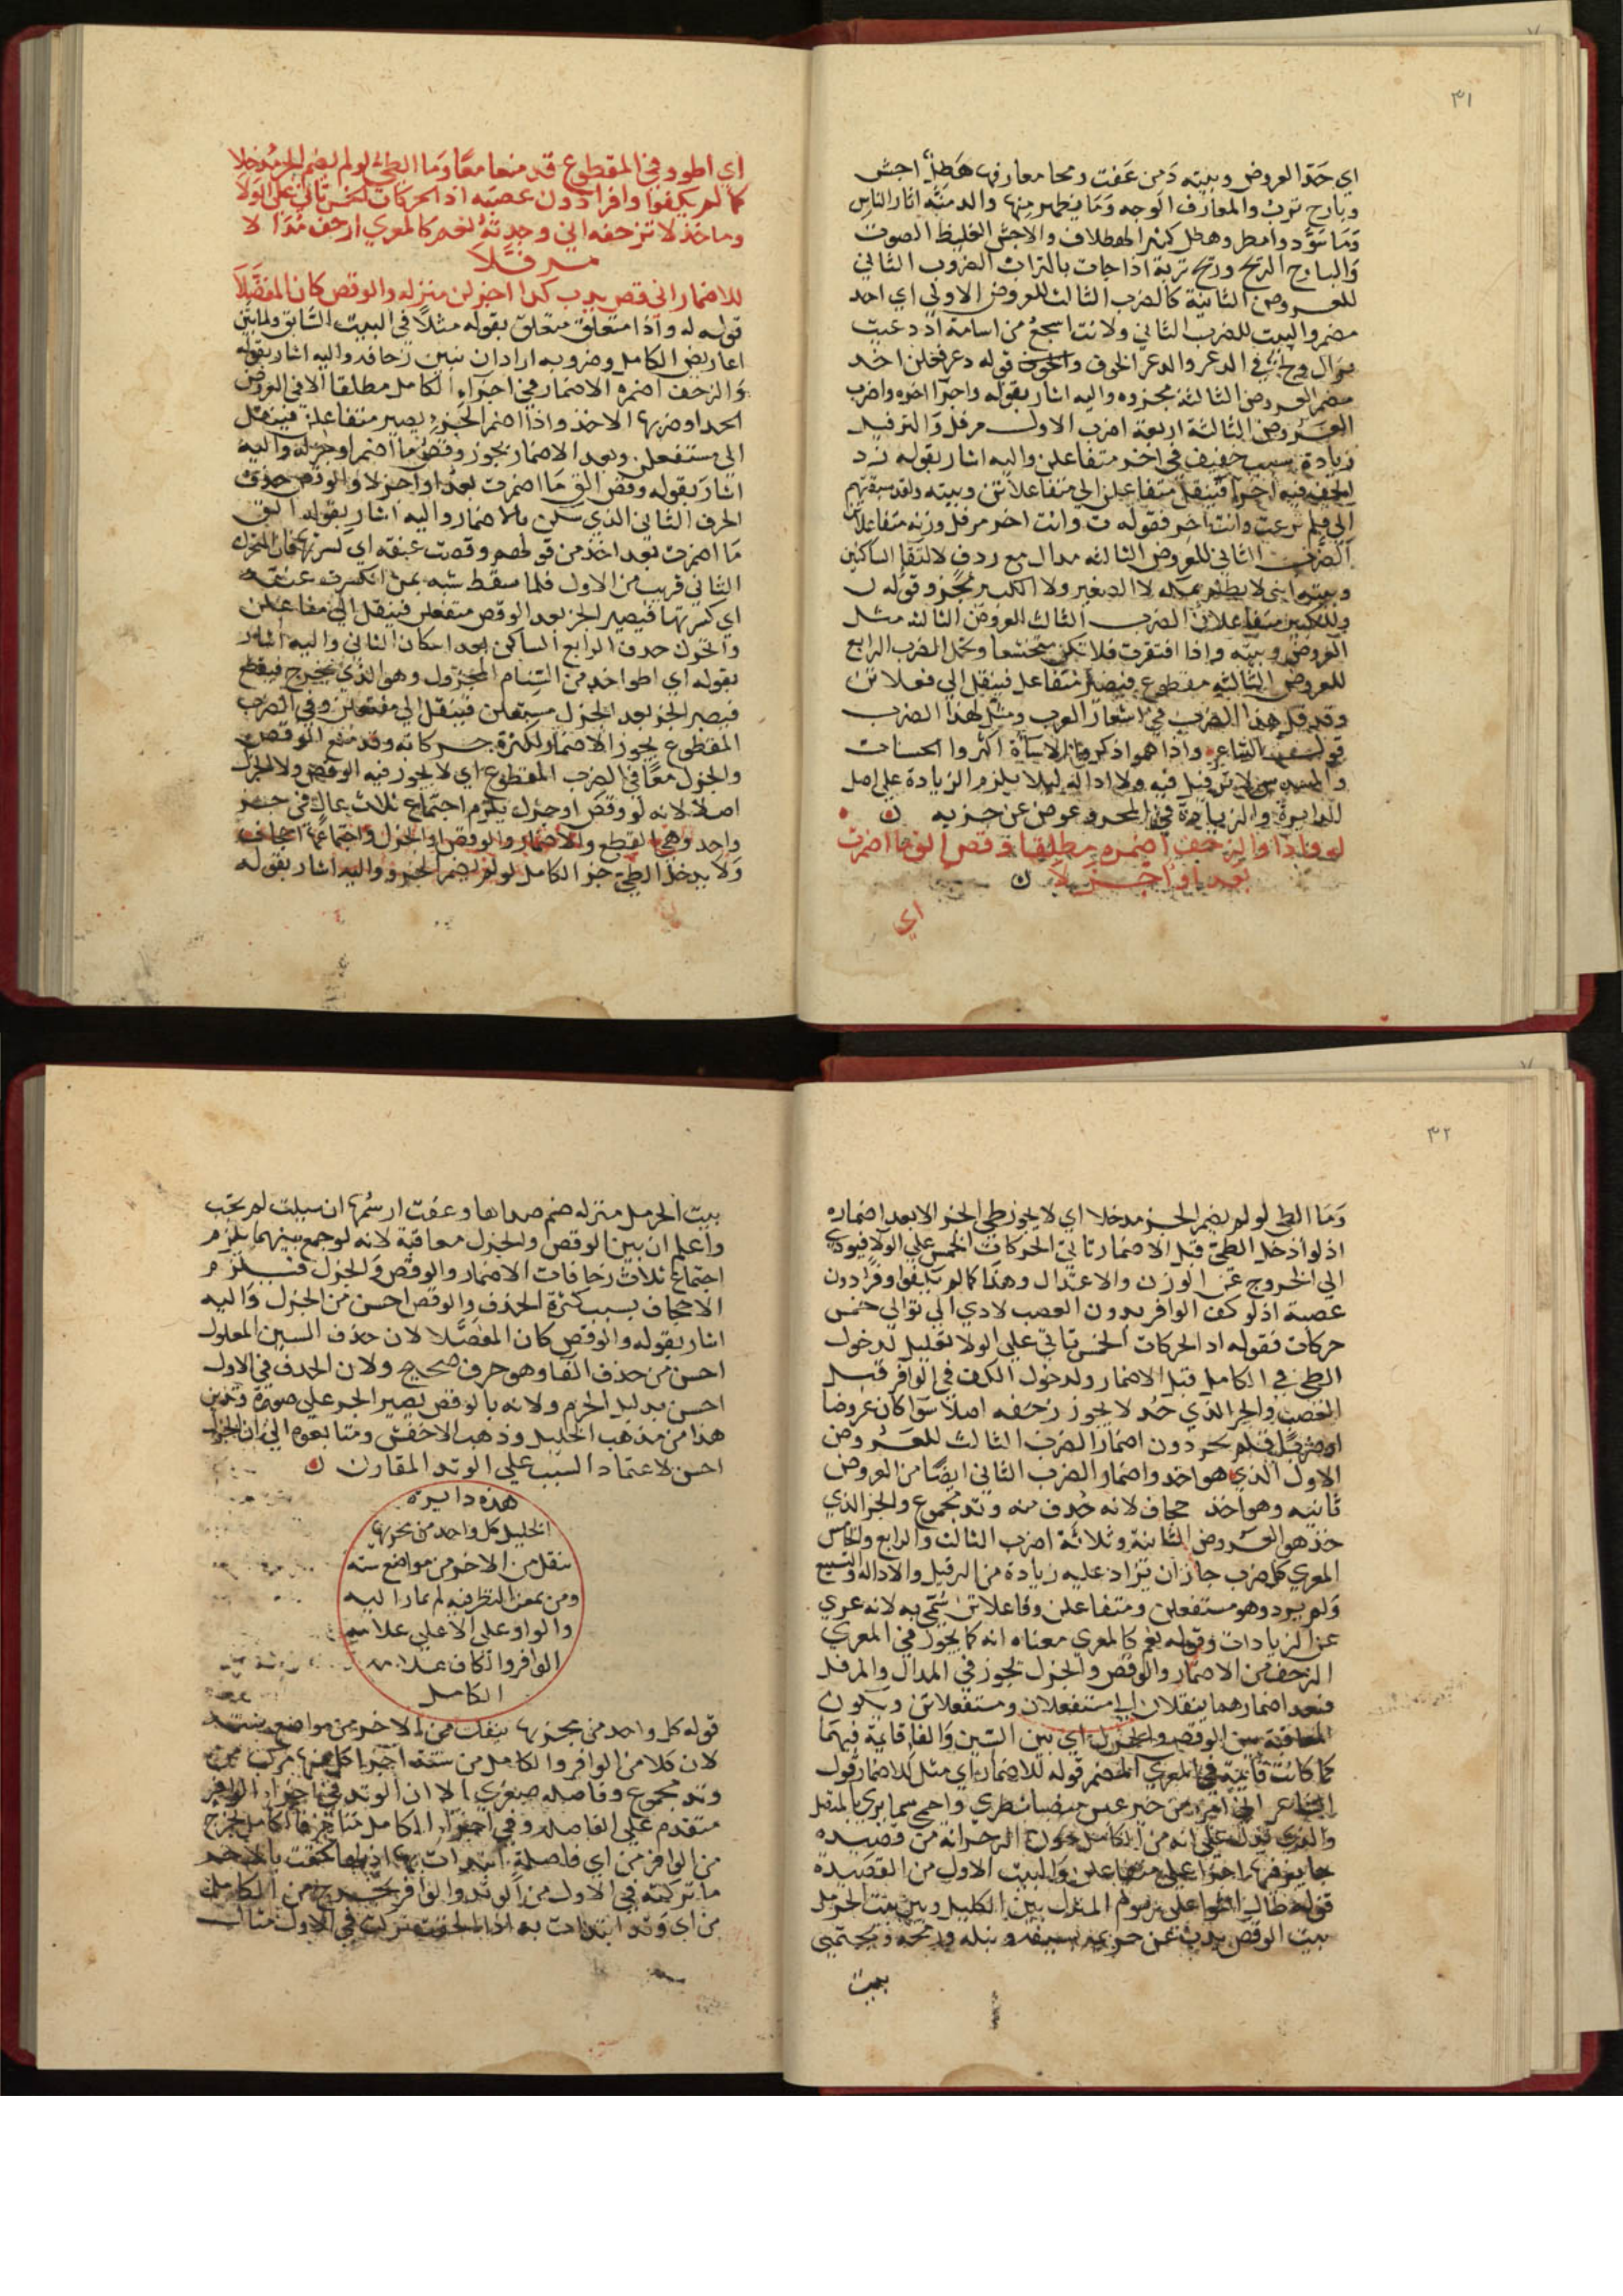 ٣١
اي حذا العروض وبيته دمن عفت ومحا معارفها هطل اجش
وبارح ترب والمعارف الوجه وما يظهر منها والدمنة اثار الناس
وما سود وامطر وهطل كثير الهطلان والاجش الغليظ الصوت
والبارح الريح وريح تربة اذا جات بالتراب الضرب الثاني
للعروض الثانية كالضرب الثالث للعروض الاولى اي احد
مضمر والبيت للضرب الثاني ولانت اشجع من اسامة اذ دعيت
نزال ولج في الدعر والدعر الخوف قوله دعر فعلن احد
مضمر العروض الثالثة مجزوه واليه اشار بقوله واجزا اخوه واضرب
العروض الثالثة اربعة اضرب الاول مرفل والترفيل
زيادة سبب خفيف في اخر متفاعلن واليه اشار بقوله زد
لخف فيه اخرا فينقل متفاعلن الي متفاعلاتن وبيته ولقد سبقتهم
الي فلم نزعت وانت اخر فقوله ت وانت اخر مرفل وزنه متفاعلاتن
الضرب الثاني للعروض الثالثه مدال مع ردف لالتقا الساكنين
وبيته ابني لا تظلم بمكة لا الصغير ولا الكبير مجزو قوله ل
وللكبير متفاعلان الضرب الثالث العروض الثالثه مثل
العروض وبيته واذا افتقرت فلا تكن متخشعا وتجمل الضرب الرابع
للعروض الثالثه مقطوع فيصير متفاعل فينقل الي فعلاتن
وقد قل هذا الضرب في اشعار العرب ومثل لهذا الضرب
قول الشاعر واذا هم اذكروا الاساة اكثروا الحسنات
والمسدس لا ترفيل فيه ولا ادالة ليلا يلزم الزيادة علي اصل
الدايرة والزيادة في المجزو عوض عن جزيه ن
له واذا والزحف اضمره مطلقا وقص الق ما اضمرت
بعد او اجزلا ن
اي
اي اطو وفي المقطوع قد منعا معا وما الطي لو لم يضمر الجز مدخلا
كما لم يكفوا وافرا دون عصبه اذ الحركات الخمس تاتي علي الولا
وما حذ لا تزحفه اني وجدته نعم كالمعري ازحف مدالا
مرفلا
للاضمار اني قص يدب كذا اجزلن منزله والوقص كان المفضلا
قوله له واذا متعلق متعلق بقوله مثلا في البيت السابق ولما بين
اعاريض الكامل وضروبه اراد ان نبين زحافه واليه اشار بقوله
والزحف اضمره الاضمار في اجزاء الكامل مطلقا الا في العروض
الحدا وضربها الاحذ واذا اضمر الجزو يصير متفاعلن فينقل
الي مستفعلن وبعد الاضمار يجوز وقص ما اضمر او جزله واليه
اشار بقوله وقص الق ما اضمرت بعد او اجزلا والوقص حذف
الحرف الثاني الذي سكن بالاضمار واليه اشار بقوله الق
ما اضمرت بعد اخذ من قولهم وقصت عنقه اي كسرتها فان المتحرك
الثاني قريب من الاول فلما سقط شبه بمن انكسرت عنقه
اي كسرتها فيصير الجز بعد الوقص متفعلن فينقل الي مفاعلن
والخزل حذف الرابع الساكن بعد اسكان الثاني واليه اشار
بقوله اي اطوا اخذ من السنام المخزول وهو الذي يخرج فيقطع
فيصير الجز بعد الجزل مستعلن فينقل الي مفتعلن وفي الضرب
المقطوع يجوز الاضمار لكثرة حركاته وقد منع الوقص
والجزل معا في الضرب المقطوع اي لا يجوز فيه الوقص ولا الجزل
اصلا لانه لو وقص او جزل يلزم اجتماع ثلاث علل في جزء
واحد وهي القطع والاضمار والوقص او الجزل واجتماعها اجحاف
ولا يدخل الطي جز الكامل لو لم يضمر الجزو واليه اشار بقوله
٣٢
وما الطي لو لم يضمر الجز مدخلا اي لا يجوز طي الجز الا بعد اضماره
اذ لو ادخل الطي قبل الاضمار تاتي الحركات الخمس علي الولا فيودي
الي الخروج عن الوزن والاعتدال وهذا كما لم يكفوا وافرا دون
عصبة اذ لو كف الوافر بدون العصب لادي الي توالي خمس
حركات فقوله اذ الحركات الخمس تاتي علي الولا تعليل لدخول
الطي في الكامل قبل الاضمار ولدخول الكف في الوافر قبل
العصب والجز الذي حذ لا يجوز زحفه اصلا سوا كان عروضا
او ضربا فلم يجز دون اضمار الضرب الثالث للعروض
الاول الذي هو احد واضمار الضرب الثاني ايضا من العروض
ثانيه وهو احذ حجاف لانه حذف منه وتد مجموع والجز الذي
حذ هو العروض الثانية وثلاثة اضرب الثالث والرابع والخامس
المعري كل ضرب جاز ان تزاد عليه زيادة من الترفيل والاداله والتسبيع
ولم يرد وهو مستفعلن ومتفاعلن وفاعلاتن سمي به لانه عري
عن الزيادات وقوله نعم كالمعري معناه انه كما يجوز في المعري
الزحف من الاضمار والوقص والجزل يجوز في المدال والمرفل
فبعد اضمارهما ينقلان الي مستفعلان ومستفعلاتن ويكون
المعاقبة بين الوقص والجزل اي بين السين والفا قايمة فيهما
كما كانت قايمة في المعري المضمر قوله للاضمار اي مثل للاضمار قول
الشاعر اني امرؤ من خير عبس منصبا شطري واحمي سايري بالمنصل
والذي يدل علي انه من الكامل دون الرجز انه من قصيده
جا يزفها اجزا علي متفاعلن والبيت الاول من القصيدة
قوله طال الثوا علي رسوم المنزل بين الكليل وبين بيت الحرمل
بيت الوقص يذب عن حريمه بسيفه ونبله ورمحه ويحتمي
بيت
بيت الخزل منزلة صم صداها وعفت ارسمها ان سيلت لم تجب
واعلم ان بين الوقص والجزل معاقبة لانه لو جمع بينهما يلزم
اجتماع ثلاث زحافات الاضمار والوقص والجزل فيلزم
الاجحاف بسبب كثرة الحذف والوقص احسن من الجزل واليه
اشار بقوله والوقص كان المفضلا لان حذف السين المعلول
احسن من حذف الفا وهو حرف صحيح ولان الحذف في الاول
احسن بدليل الخرم ولانه بالوقص يصير الجز علي صورة وتدين
هذا من مذهب الخليل وذهب الاخفش ومتابعوه الي ان الجزل
احسن لاعتماد السبب علي الوتد المقارن ن
هذه دايرة
الخليل كل واحد من بحريها
ينفك من الاخر من مواضع ستة
ومن يمعن النظر فيه لم يمار اليه
والواو علي الاعلي علامه
الوافر والكاف علامه
الكامل
قوله كل واحد من بحريها ينفك من الاخر من مواضع ستة
لان كلا من الوافر والكامل من ستة اجزا كل منها مركب من
وتد مجموع وفاصله صغري الا ان الوتد في اجزاء الوافر
متقدم علي الفاصله وفي اجزاء الكامل متاخر فالكامل يخرج
من الوافر من اي فاصلة ابتدات بها اذ الحقت بالاخر
ما تركته في الاول من الوتد والوافر يخرج من الكامل
من اي وتد ابتدات به اذا الحقت ما تركت في الاول مثال